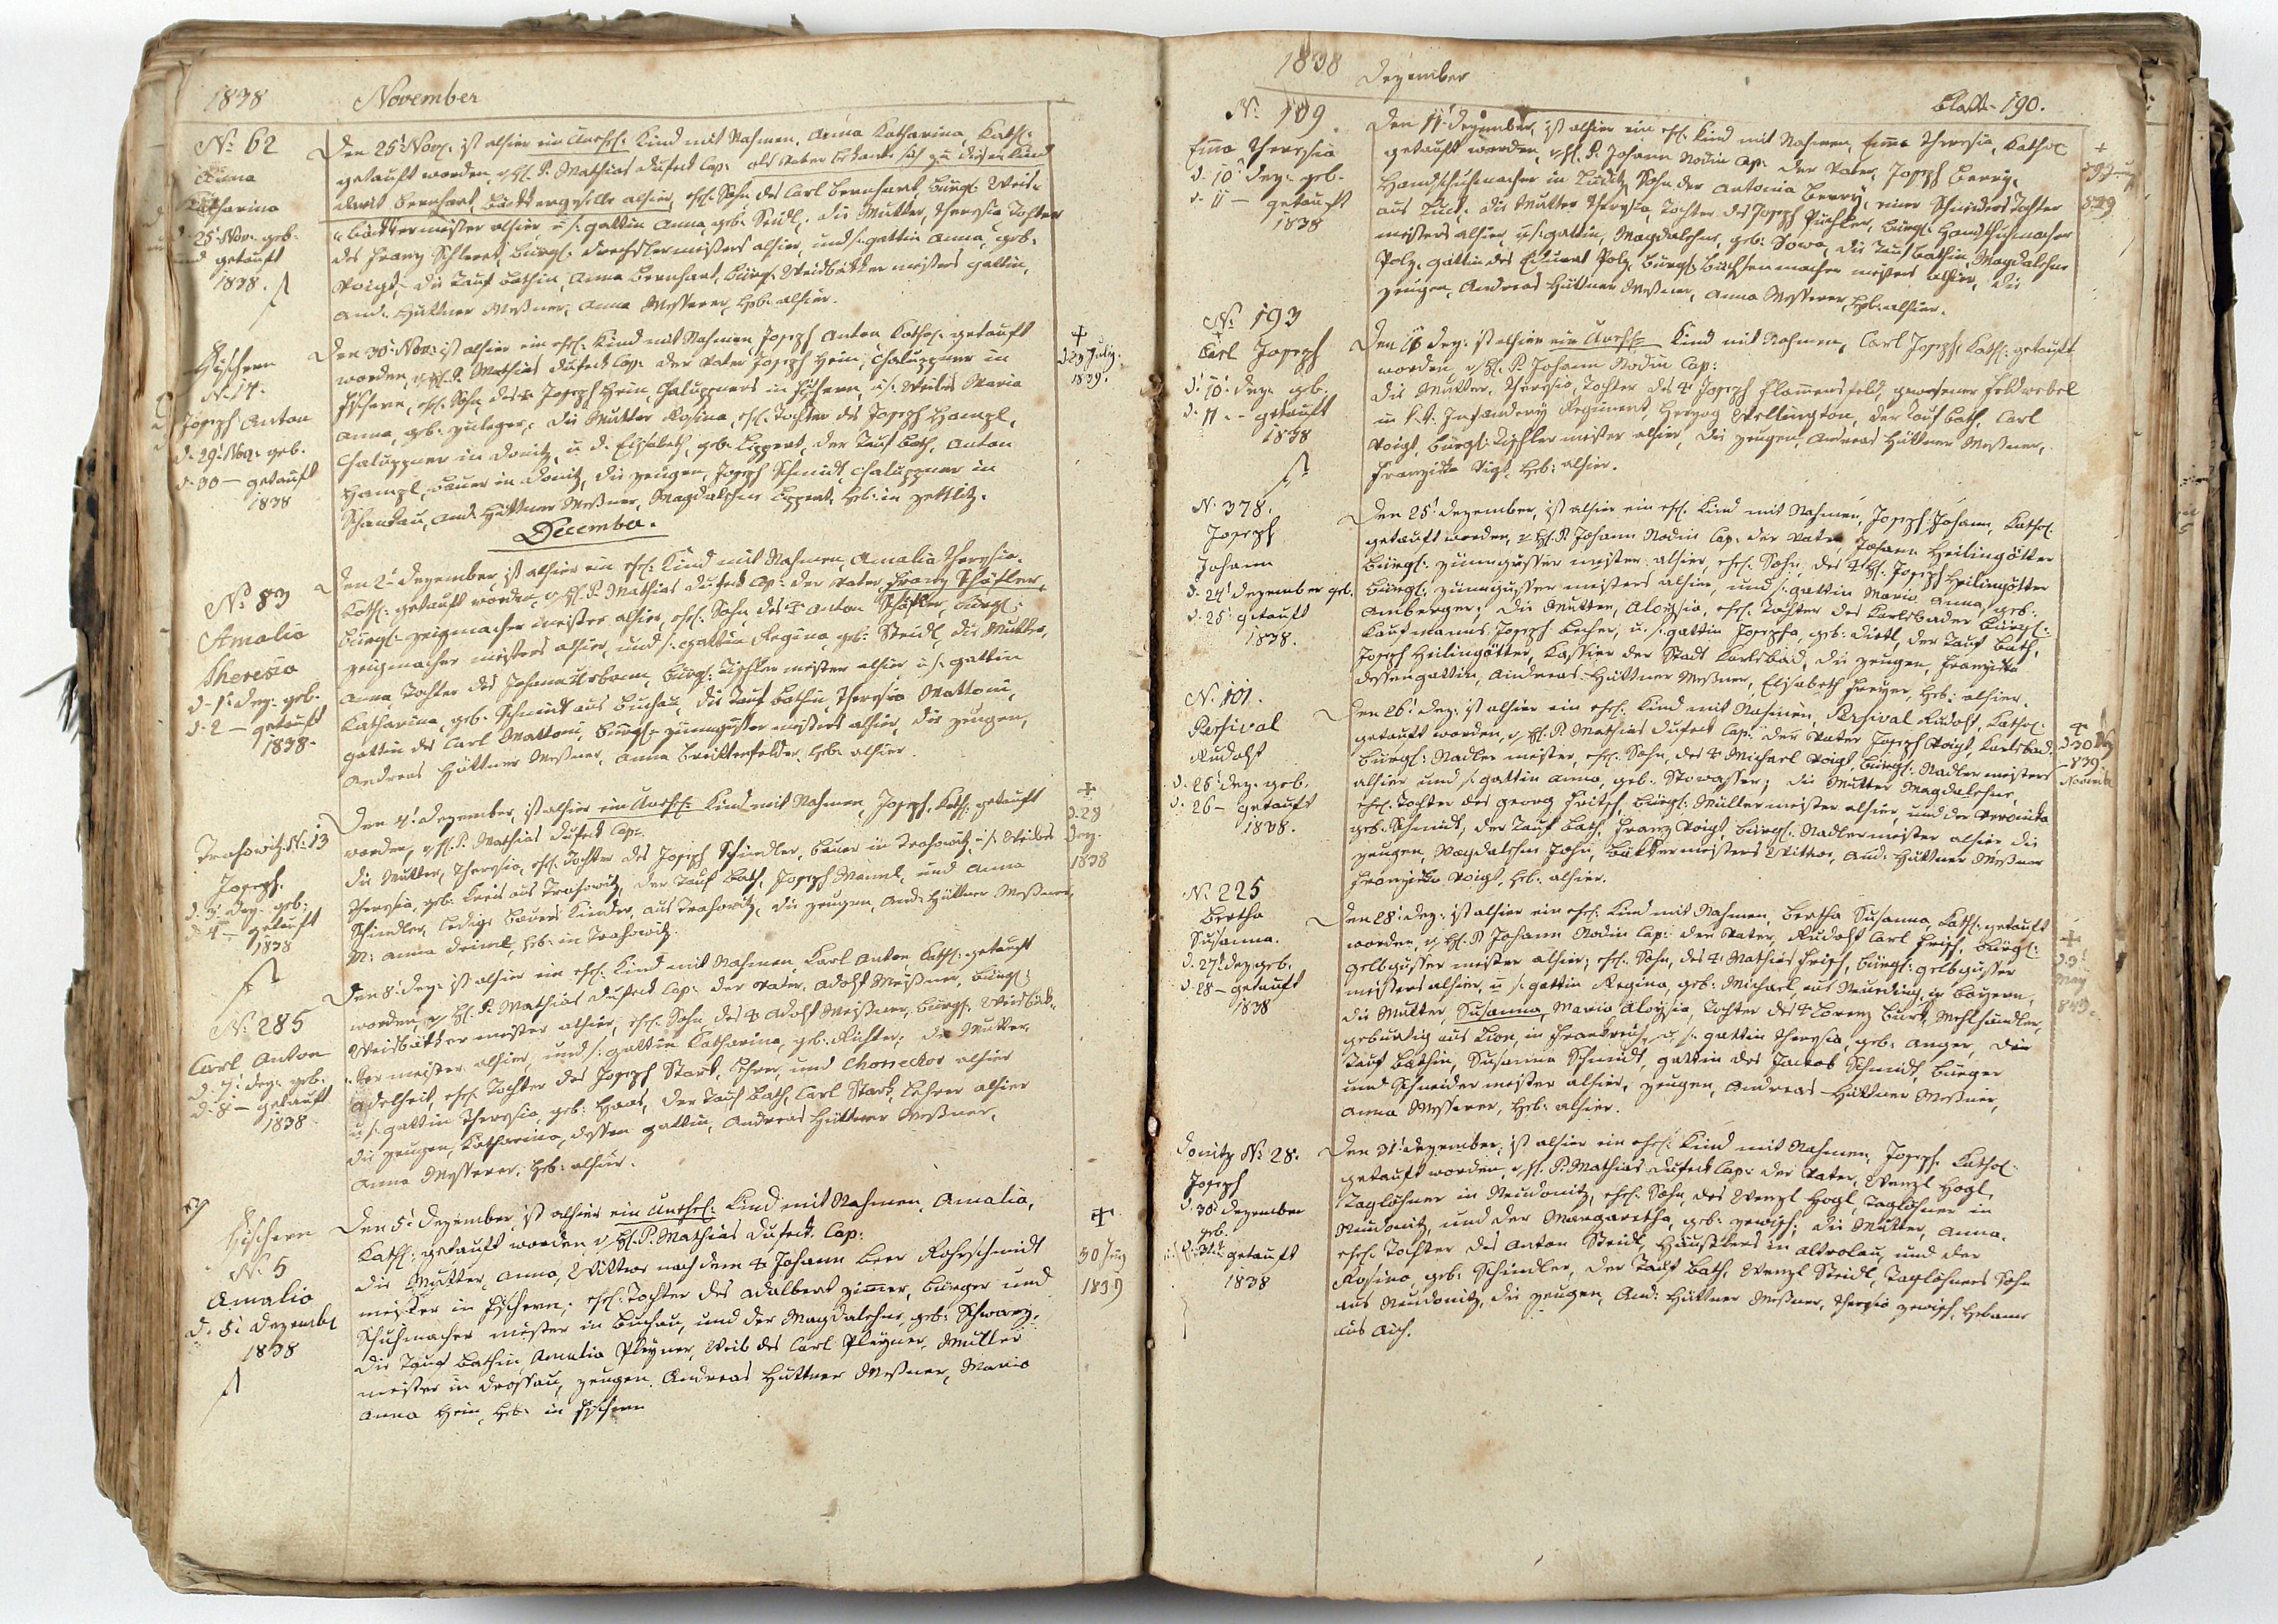 1838 November
N: 62
Anna
Katharina
d. 25t Nov. geb.
und getauft
1838.
Den 25t Nov. ist alhier ein Unehl. Kind mit Nahmen, Anna Katharina, Kath:
getauft worden, P. Mathias Dufeck Cap: als Vater bekante sich zu diesem Kind
Bernhart, Bäckergeselle alhier, ehl. Sohn des Carl Bernhart, bürgl: Weis-
bäckermeister alhier u. s. gattin Anna, geb: Seidl, die Mutter, Theresia Tochter
des Franz, bürgl: Drechslermeisters alhier, und s. gattin Anna, geb:
Voigt, die Tauf Bathin, Anna Bernhart, bürgl. Weisbäckermeisters gattin,
And: Hüttner Meßner, Anna Messerer, Heb: alhier.
Fischern
N: 14.
Joseph Anton
d. 29t Nov. geb.
d. 30 — getauft
1838
Den 30t Nov: ist alhier ein ehl. Kind mit Nahmen Joseph Anton, Kathol. getauft
worden, P. Mathias Dufeck Cap: der Vater Joseph Hein, Chaluppner in
Fischern, ehl. Sohn des Joseph Hein, Chaluppners in Fischern, u. s. Weibes Maria
Anna, geb. die Mutter Rosina, ehl. Tochter des Joseph Hampl,
Chaluppner in Donitz, u. d. Elisabeth, geb. Lippert, der Tauf Bath, Anton
Hampl, Bauer in Donitz, die Zeugen, Joseph Schmidt, Chaluppner in
And: Hüttner Meßner, Magdalena Lippert, Heb: in Zettlitz.
1839.
December.
N: 83
Amalia
Theresia
d. 1t Dez: geb.
d. 2 — getauft
1838.
Den 2t Dezember ist alhier ein ehl. Kind mit Nahmen, Amalia Theresia
Kath: getauft worden, P. Mathias Dufeck Cap: der Vater, Franz Schäfler,
bürgl. Zeugmacher meister alhier, ehl. Sohn des Anton Schäfler, bürgl:
Zeugmacher meisters alhier, und s. gattin Regina, geb: Seidl, die Mutter,
Anna Tochter des Johann Urbann, bürgl: Tischler meister alhier u. s. gattin
Katharina, geb: Schmidt aus Buchau, die Tauf Bathin, Theresia Mattoni,
gattin des Carl Mattoni, bürgl. zinngusser meisters alhier, die Zeugen,
Andreas Hüttner Meßner, Anna Breitenfelder, Heb: alhier.
N: 13
Joseph
d. 3t Dez: geb:
d. 4 — getauft
1838
Den 4t Dezember ist alhier ein Unehl: Kind mit Nahmen, Joseph, Kath: getauft
worden, P. Mathias Dufeck Cap:
die Mutter, Theresia, ehl. Tochter des Joseph Schindler, Bauer in u. s. Weibes
Theresia, geb: der Tauf Bath, Joseph und Anna
Schindler, ledige Bauers Kinder, die Zeugen, And: Hüttner Meßner,
d. 28
Dez.
1838
N: 285
Carl Anton
d. 7t Dez: geb.
d. 8 — getauft
1838.
Den 8t Dez: ist alhier ein ehl. Kind mit Nahmen Karl Anton Kath: getauft
worden, P. Mathias Dufeck Cap: der Vater, Adolf Meißner, bürgl:
Weisbäcker meister alhier, ehl. Sohn des Adolf Meißner, bürgl. Weisbäk-
ker meister alhier, und s. gattin Katharina, geb. Richter; die Mutter
Adelheit, ehl. Tochter des Joseph Stark, Lehrer, und Chorrecktor alhier
u. s. gattin Theresia, geb: Haas, der Tauf Bath, Carl Stark, Lehrer alhier
die Zeugen, Katharina, dessen gattin, Andreas Hüttner Meßner,
Anna Messerer, Heb: alhier.
Fischern
N. 5
Amalia
d. 5t Dezemb
1838
Den 5t Dezember ist alhier ein Unehel: Kind mit Nahmen, Amalia,
Kath: getauft worden P. Mathias Dufeck Cap:
die Mutter, Anna, Wittwe nach dem Johann Rohrschmidt
meister in Fischern, ehl. Tochter des Adalbert Zimmer, Bürger und
Schuhmacher meister in Buchau, und der Magdalena, geb: Schwarz,
die Tauf Bathin Amalia Pleyner, Weib des Carl Pleyner, Müller
meister in, Zeugen, Andreas Hüttner Meßner, Maria
Anna Hein, Heb: in Fischern
1839
1838 Dezember
Blatt- 190.
N: 109
Emma Theresia
d. 10t Dez: geb.
d. 11 — getauft
1838
Den 11t Dezember, ist alhier ein ehl. Kind mit Nahmen, Emma Theresia, Kathol
getauft worden, P. Johann Nodin Cap: der Vater, Joseph Berry,
Handschuhmacher in Luditz, Sohn der Antonia Berry, einer Schneiders Tochter
die Mutter Theresia Tochter des Joseph, bürgl: Handschuhmacher
meisters alhier, u. s. gattin, Magdalena, geb: Sowa, die Tauf Bathin, Magdalena
Polz, gattin des Eduart Polz, bürgl: Büchsenmacher meisters alhier, die
Zeugen, Andreas Hüttner Meßner, Anna Messerer, Heb: alhier.
N: 193
Carl Joseph
d. 10t Dez: geb.
d. 11 — getauft
1838
Den 11 Dez: ist alhier ein Unehl= Kind mit Nahmen, Carl Joseph, Kath: getauft
worden, P. Johann Nodin Cap:
die Mutter, Theresia, Tochter des Joseph, gewesener Feldwebel
Infanterie Regiment, Herzog Wellington, der Tauf Bath, Carl
Voigt, bürgl: Tischler meister alhier, die Zeugen, Andreas Hüttner Meßner,
Franziska Vigt, Heb: alhier.
N. 378.
Joseph
Johann
d. 24t Dezember geb.
d. 25t getauft
1838.
Den 25t Dezember, ist alhier ein ehl. Kind mit Nahmen, Joseph Johann, Kathol.
getauft worden, P. Johann Nodin Cap: der Vater, Johann Heilingötter
bürgl: zinngusser meister alhier, ehl. Sohn, des Joseph Heilingötter
bürgl: zinngusser meisters alhier, und s. gattin Maria Anna, geb.
Amberger, die Mutter, Aloysia, ehl. Tochter des Karlsbader bürgl:
Kaufmanns Joseph Becher, u. s. gattin Josepha, geb: Dietl, der Tauf Bath,
Joseph Heilingötter, Kassier der Stadt Karlsbad, die Zeugen, Franziska
dessen gattin, Andreas Hüttner Meßner, Elisabeth Freyer, Heb: alhier.
N. 101.
Persival
Rudolf
d. 26t Dez: geb.
d. 26 — getauft
1838.
Den 26t Dez: ist alhier ein ehl. Kind mit Nahmen, Persival Rudolf, Kathol:
getauft worden, P. Mathias Dufeck Cap: der Vater Joseph Voigt, Karlsbad:
bürgl: Nadler meister, ehl. Sohn, des Michael Voigt, bürgl: Nadler meisters
alhier und s. gattin Anna, geb. Stowasser; die Mutter Magdalena,
ehl. Tochter des Georg Fritsch, bürgl. Müllermeister alhier, und der Veronika
geb. Schmidt, der Tauf Bath, Franz Voigt, bürgl. Nadlermeister alhier die
Zeugen, Magdalena, Bäckermeisters Wittwe, And: Hüttner Meßner
Franziska Voigt, Heb: alhier.
N: 225
Bertha
Susanna.
d. 27t Dez geb.
d. 28 — getauft
1838
Den 28t Dez: ist alhier ein ehl. Kind mit Nahmen, Bertha Susanna, Kath: getauft
worden, P. Johann Nodin Cap: der Vater, Rudolf Carl Frisch, bürgl:
gelbgusser meister alhier; ehl. Sohn, des Mathias Frisch, bürgl: gelbgusser
meisters alhier, u. s. gattin Regina, geb: Michael, in Bayern,
die Mutter, Susanna, Maria Aloysia, Tochter des Lorenz, Mehlhändler,
gebürtig aus Lion, in Frankreich, u. s. gattin Theresia, geb: Anger, die
Tauf Bathin, Susanna Schmidt, gattin des Jakob Schmidt, Bürger
und Schneider meister alhier, Zeugen, Andreas Hüttner Meßner,
Anna Messerer, Heb: alhier.
May
Donitz N: 28.
Joseph
d. 30t Dezember
geb.
d. 31t getauft
1838
Den 31t Dezember, ist alhier ein ehl. Kind mit Nahmen, Joseph, Kathol:
getauft worden, P. Mathias Dufeck Cap: der Vater, Wenzl Hogl,
Taglöhner in Neudonitz, ehl. Sohn, des Wenzl Hogl, Taglöhner in
Neudonitz, und der Margaretha, geb:; die Mutter, Anna.
ehl. Tochter des Anton Seidl, Häuslers in Altrolau, und der
Rosina, geb: Schindler, der Tauf Bath, Wenzl Seidl, Taglöhners Sohn
aus Neudonitz, die Zeugen, And: Hüttner Meßner, Theresia, Hebame
aus Aich.